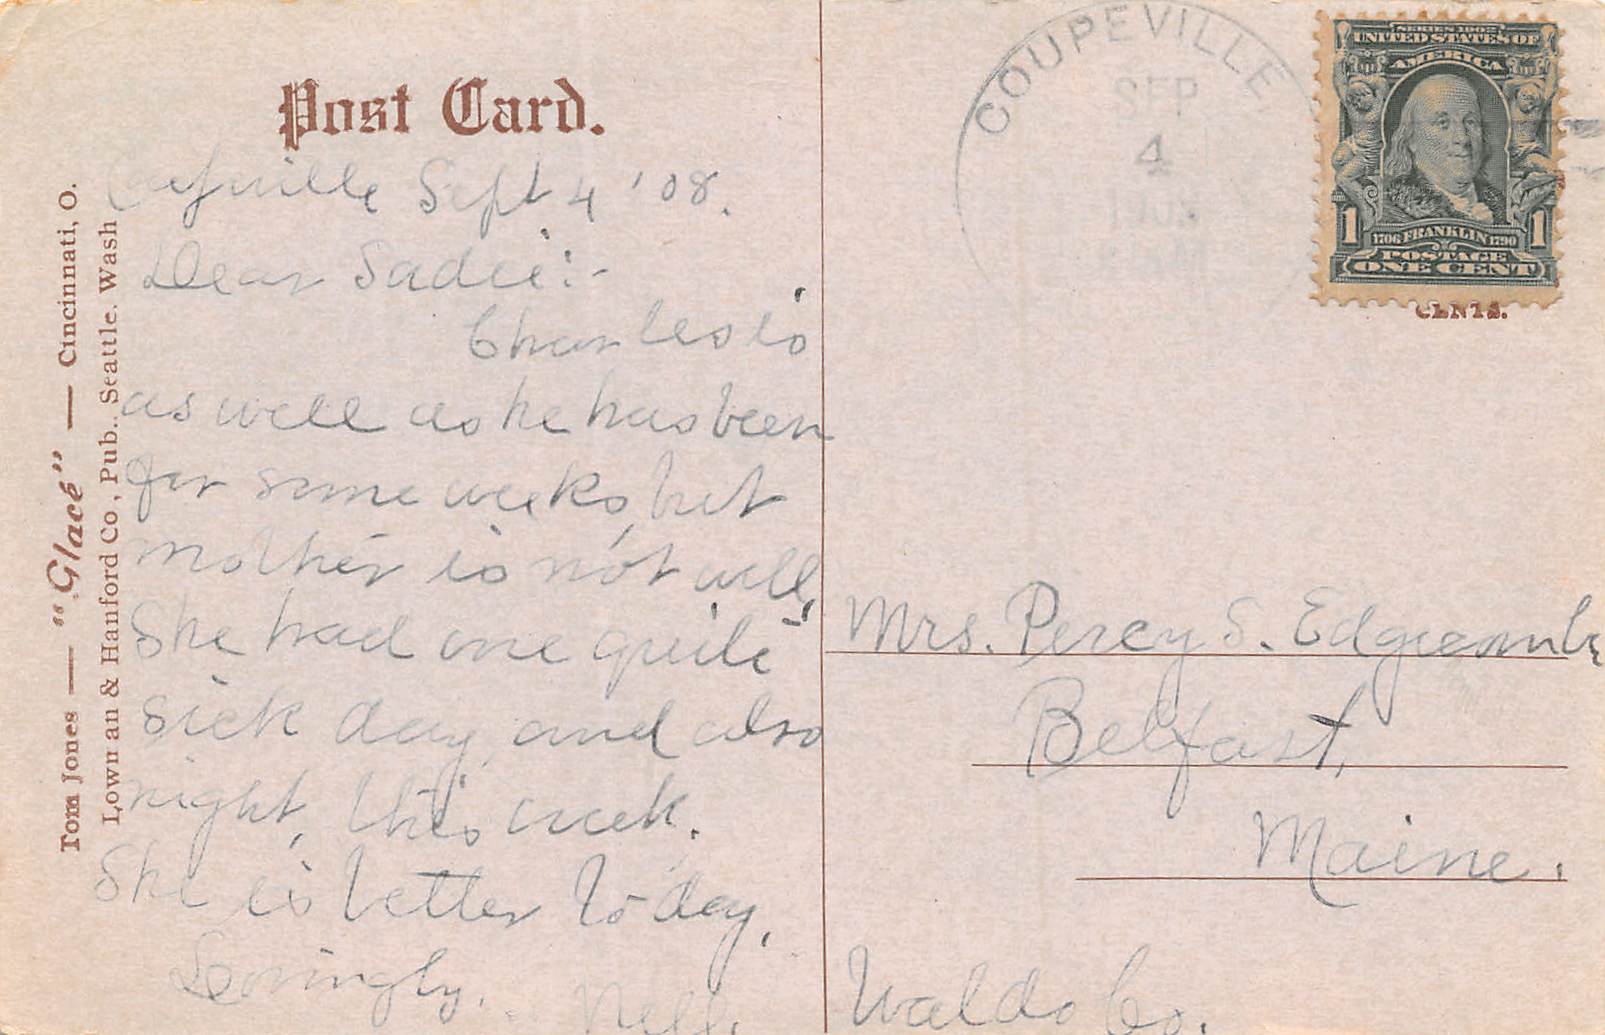 Post Card.
Sept 4 '08.
Dear Sadie:-
Charles is
as well as he has been
for some weeks, but
mother is not well,
She had one quite
sick day, and also
night, this week.
She is better to-day,
Lovingly,
Nell.
Tom Jones — "Glacé" — Cincinnati, O.
Lowman & Hanford Co., Pub., Seattle. Wash
COUPEVILLE,
SEP
4
SERIES 1902
UNITED STATES OF
AMERICA
1 1
1706 FRANKLIN 1790
POSTAGE
ONE CENT
CENTS.
Mrs. Percy S. Edgecomb
Belfast,
Maine.
Waldo Co.